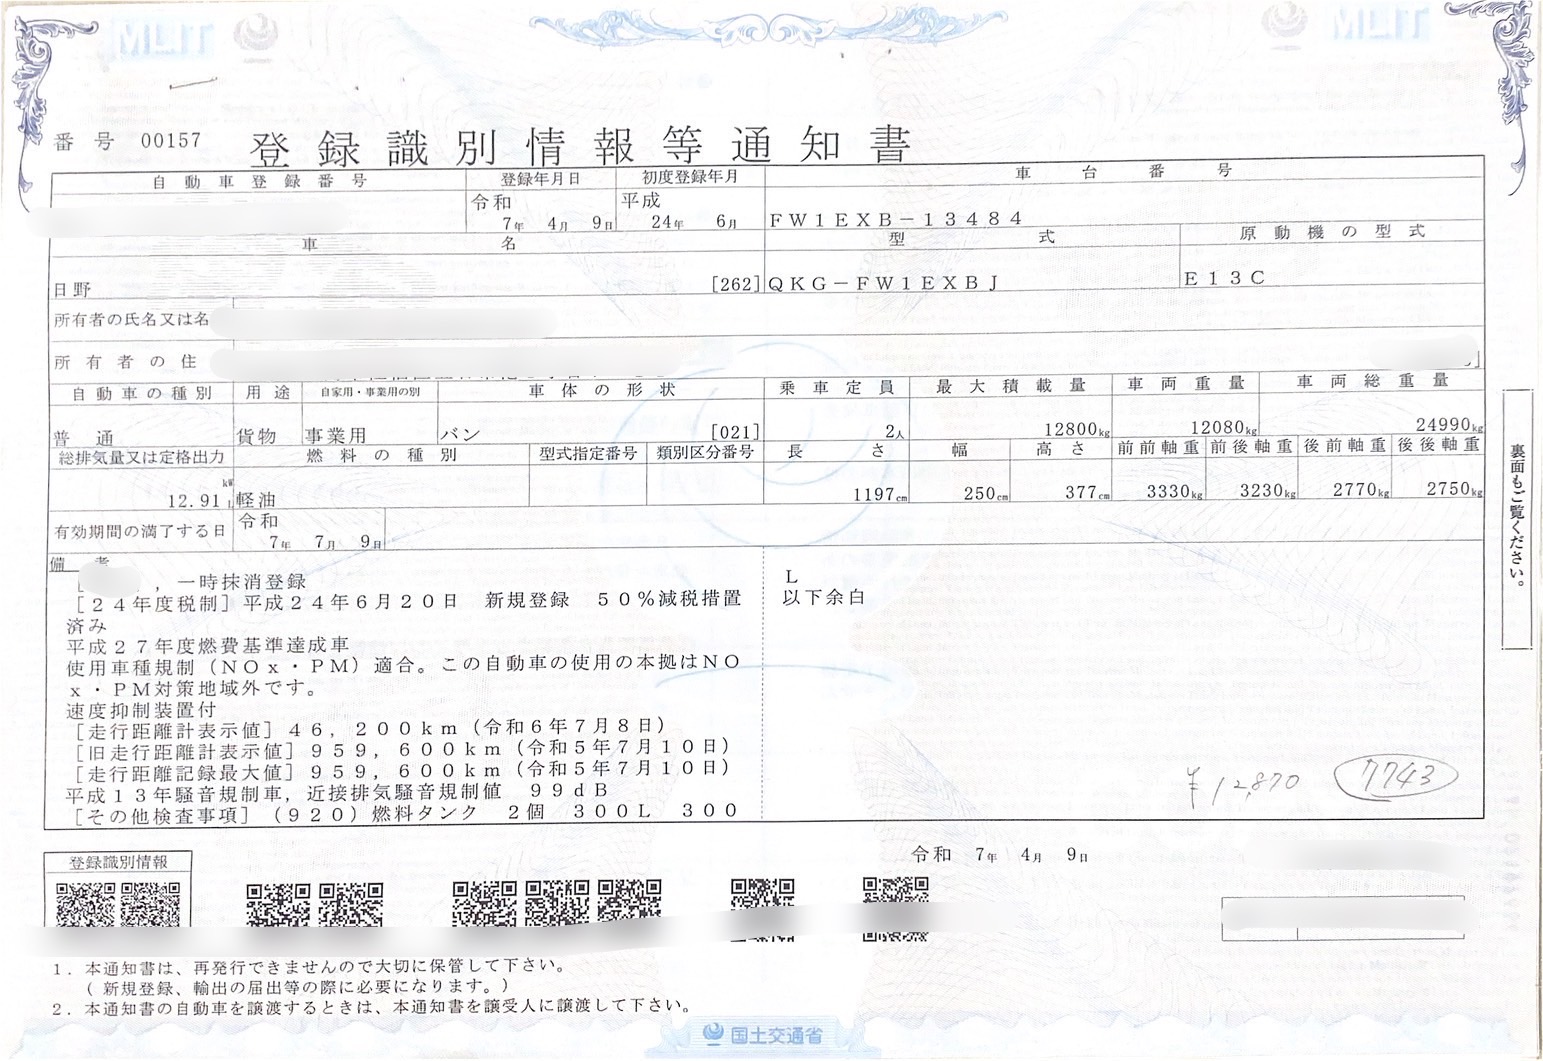 MLIT
MLIT
番号 00157 登録識別情報等通知書
自動車登録番号 登録年月日 初度登録年月 車台番号
令和 7年 4月 9日 平成 24年 6月 FW1EXB-13484
車名 型式 原動機の型式
日野 [262] QKG-FW1EXBJ E13C
所有者の氏名又は名
所有者の住
自動車の種別 用途 自家用・事業用の別 車体の形状 乗車定員 最大積載量 車両重量 車両総重量
普通 貨物 事業用 バン [021] 2人 12800kg 12080kg 24990kg
総排気量又は定格出力 燃料の種別 型式指定番号 類別区分番号 長さ 幅 高さ 前前軸重 前後軸重 後前軸重 後後軸重
12.91 kW L 軽油 1197cm 250cm 377cm 3330kg 3230kg 2770kg 2750kg
有効期間の満了する日 令和 7年 7月 9日
備考
,一時抹消登録
[24年度税制]平成24年6月20日 新規登録 50%減税措置
済み
平成27年度燃費基準達成車
使用車種規制(NOx・PM)適合。この自動車の使用の本拠はNO
x・PM対策地域外です。
速度抑制装置付
[走行距離計表示値]46,200km(令和6年7月8日)
[旧走行距離計表示値]959,600km(令和5年7月10日)
[走行距離記録最大値]959,600km(令和5年7月10日)
平成13年騒音規制車,近接排気騒音規制値 99dB
[その他検査事項](920)燃料タンク 2個 300L 300
L
以下余白
¥12,870 7743
裏面もご覧ください。
令和 7年 4月 9日
登録識別情報
1.本通知書は、再発行できませんので大切に保管して下さい。
(新規登録、輸出の届出等の際に必要になります。)
2.本通知書の自動車を譲渡するときは、本通知書を譲受人に譲渡して下さい。
国土交通省